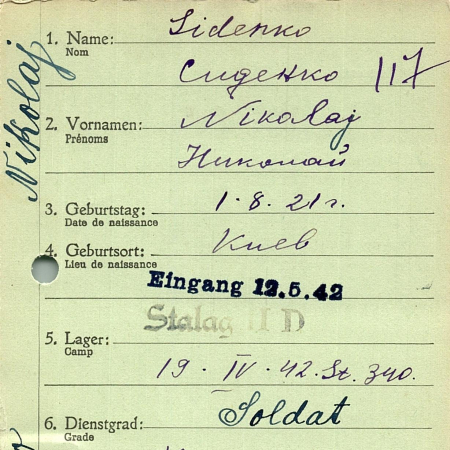 Nikolaj
1. Name: Sidenko
Nom
Сиденко 117
2. Vornamen: Nikolaj
Prénoms
Николай
3. Geburtstag: 1.8.21г.
Date de naissance
4. Geburtsort: Киев
Lieu de naissance
Eingang 12.5.42
Stalag II D
5. Lager:
Camp
19. IV. 42. St. 340.
6. Dienstgrad: Soldat
Grade